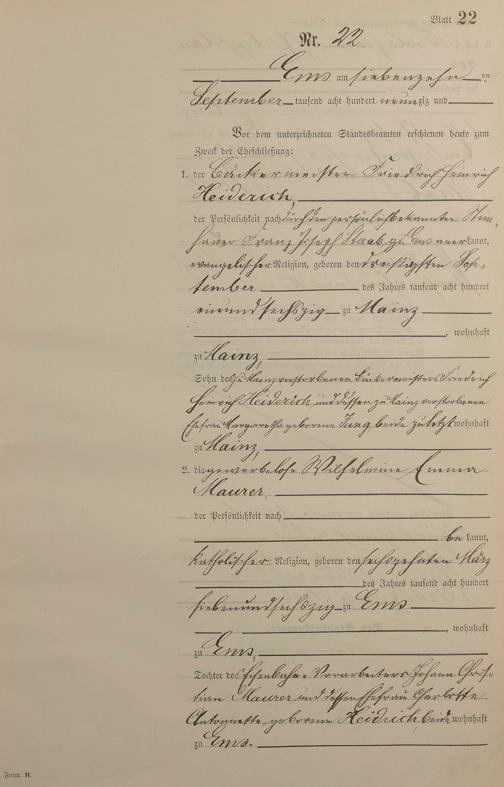 Blatt 22
Nr. 22
Ems am siebenzehn ten
September tausend acht hundert neunzig und
Vor dem unterzeichneten Standesbeamten erschienen heute zum
Zweck der Eheschließung:
1. der Bäckermeister Friedrich Heinrich
Heiderich,
der Persönlichkeit nach durch den persönlich bekannten Stein-
hauer Franz Joseph Staab zu Ems anerkannt,
evangelischer Religion, geboren den dreißigsten Sep-
tember des Jahres tausend acht hundert
einundsechszig zu Mainz
, wohnhaft
zu Mainz,
Sohn des zu Mainz verstorbenen Bäckermeisters Friedrich
Heinrich Heiderich und dessen zu Mainz verstorbene
Ehefrau Margaretha geborene Jung, beide zuletzt wohnhaft
zu Mainz,
2. die gewerbelose Wilhelmine Emma
Maurer,
der Persönlichkeit nach
be kannt,
katholischer Religion, geboren den sechszehnten März
des Jahres tausend acht hundert
siebenundsechszig zu Ems
, wohnhaft
zu Ems
Tochter des Eisenbahn-Vorarbeiters Johann Chris-
tian Maurer und dessen Ehefrau Charlotte
Antoinette geborene Heidrich, beide wohnhaft
zu Ems.
Form. B.